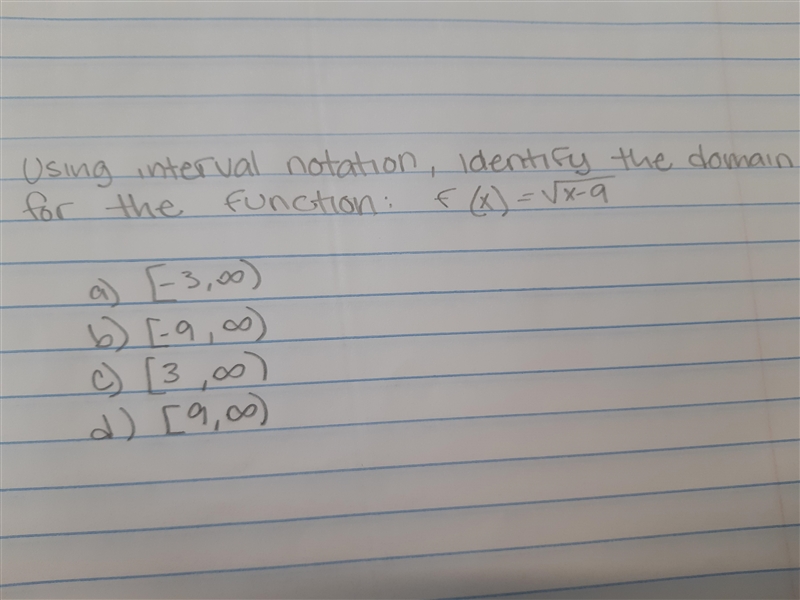 Using interval notation, identify the domain
for the function: f(x) = √x-9
a) [-3, ∞)
b) [-9, ∞)
c) [3, ∞)
d) [9, ∞)